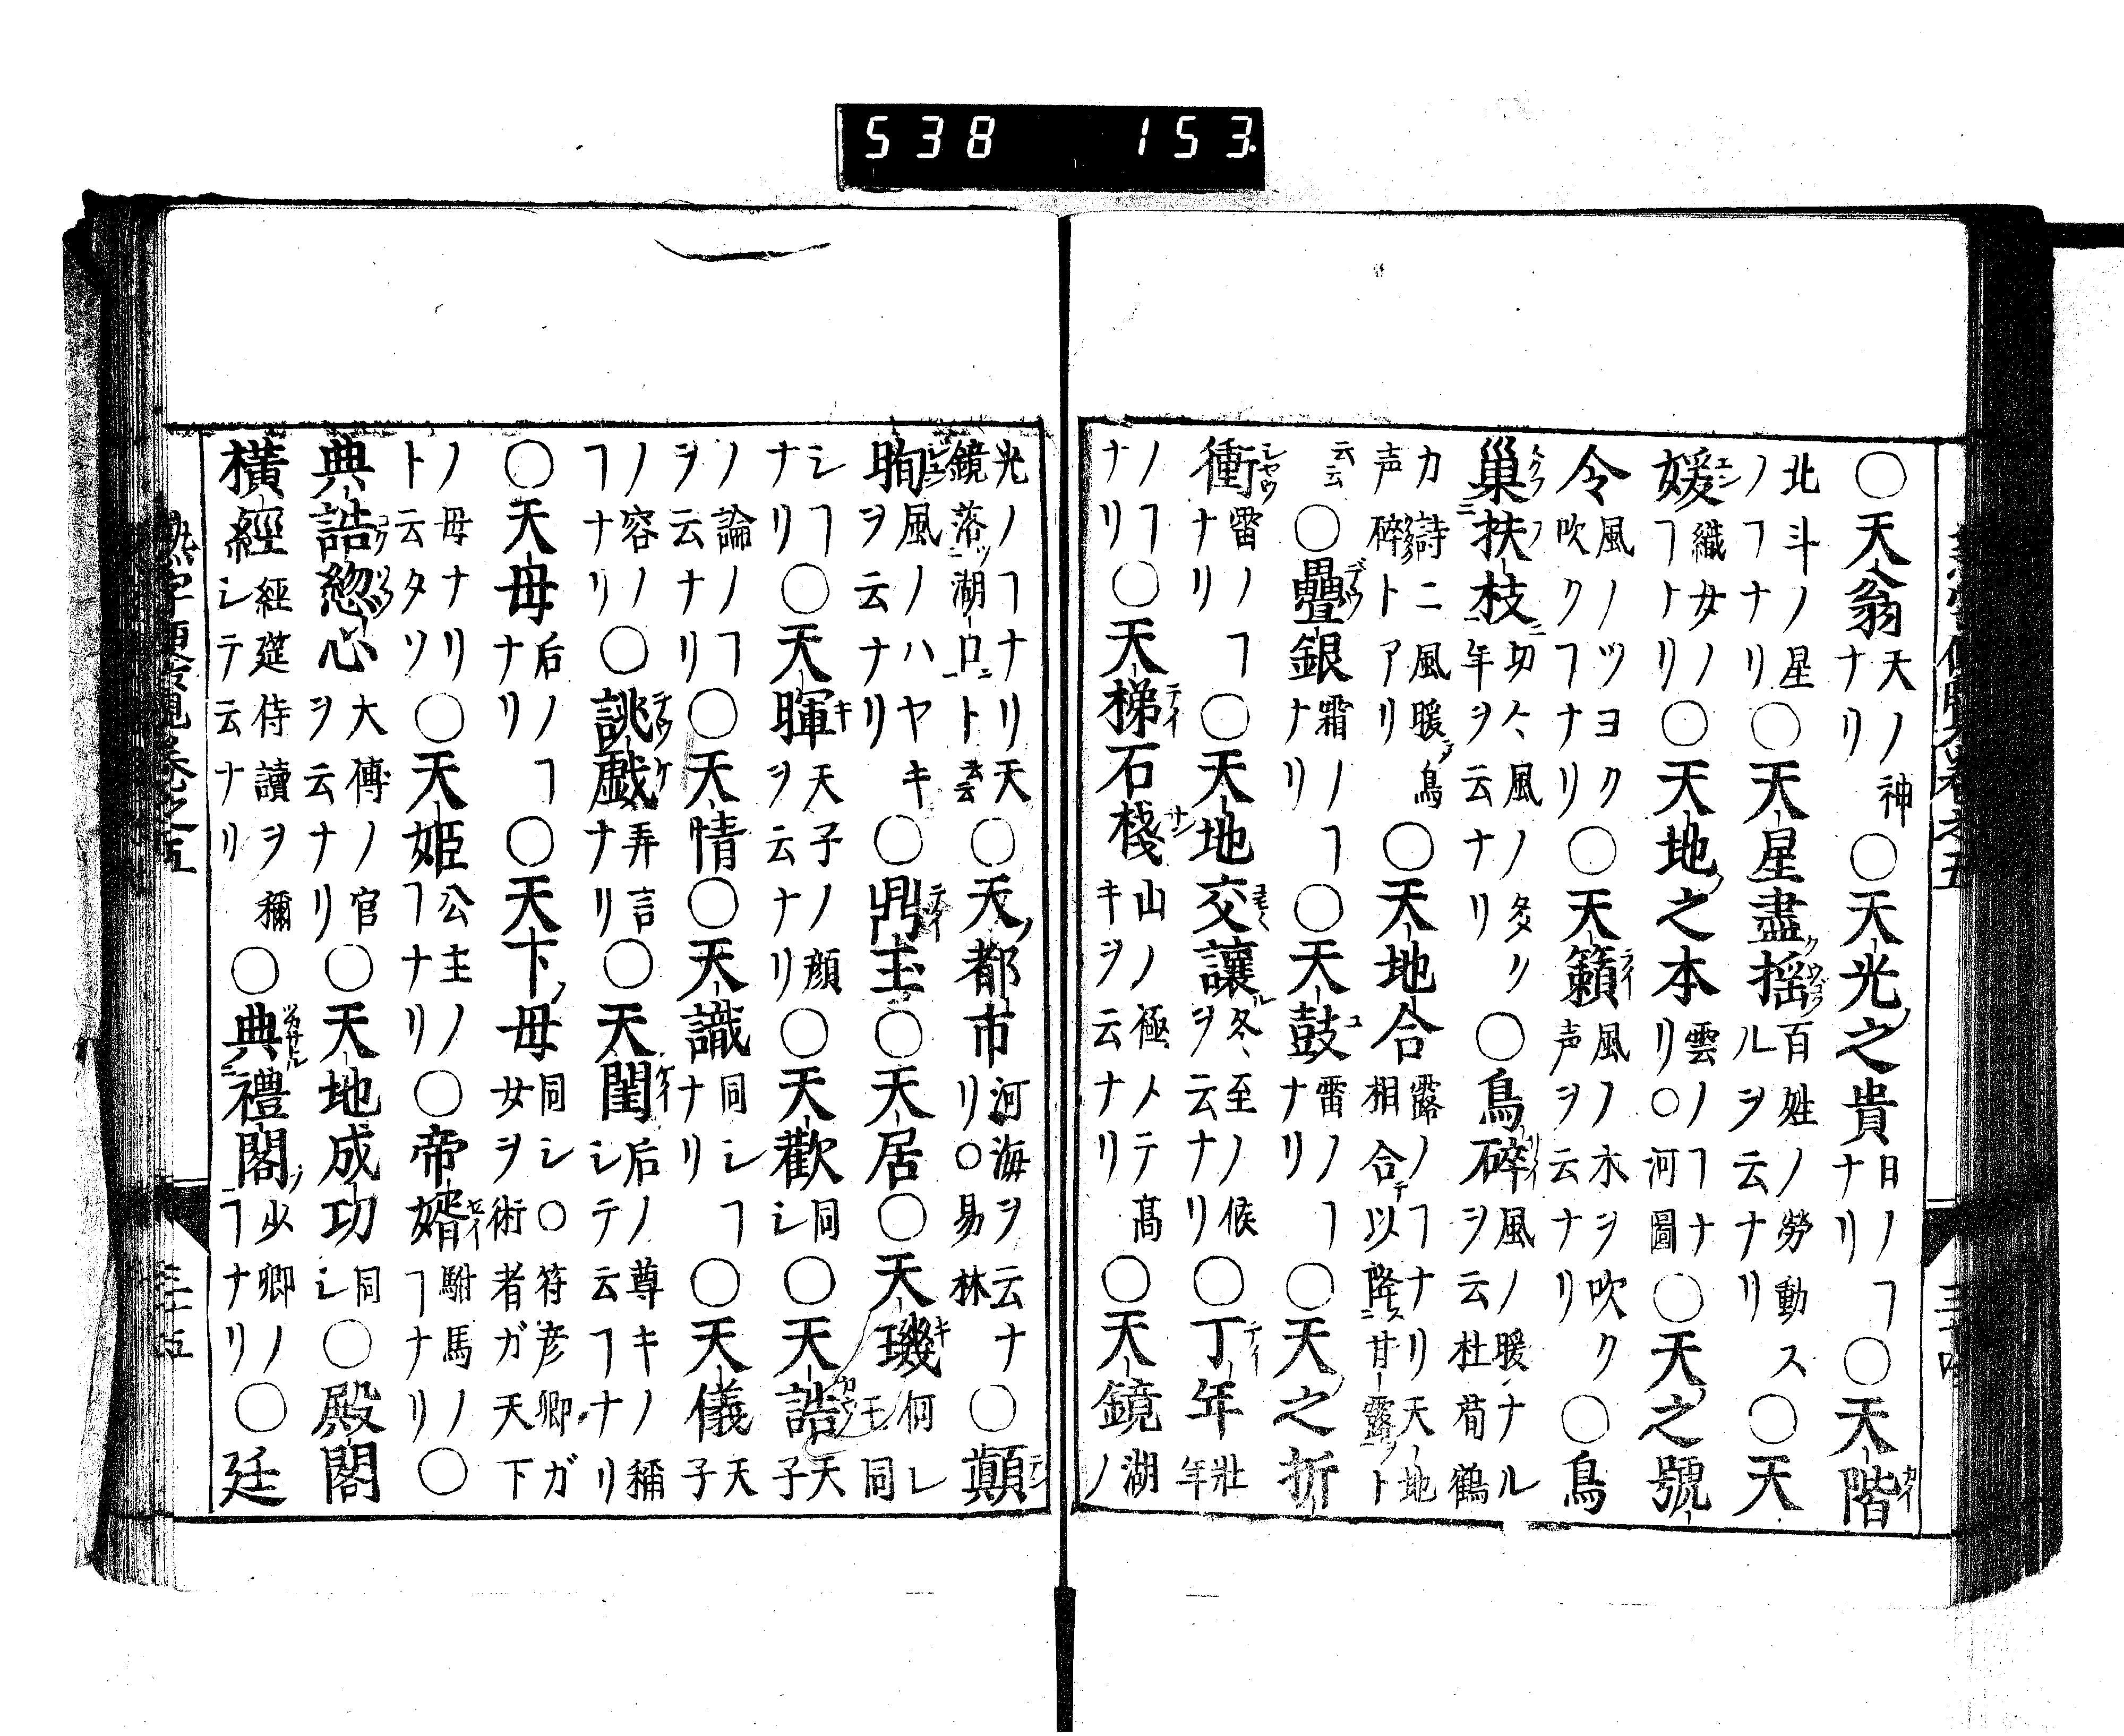 538 153.
○天翁天ノ神ナリ○天光之貴日ノヿナリ○天階
北斗ノ星ノヿナリ○天星盡揺百姓ノ勞動スルヲ云ナリ○天
媛織女ノヿトリ○天地之本雲ノヿナリ○河圖○天之號
令風ノツヨク吹クヿナリ○天籟風ノ木ヲ吹ク声ヲ云ナリ○鳥
巢扶枝切々風ノ多ク年ヲ云ナリ○鳥碎風ノ暖ナルヲ云杜荀鶴
カ詩ニ風暖鳥声碎トアリ○天地合露ノヿナリ天地相合以降甘露ト
云云○疊銀霜ノヿナリ○天鼓雷ノヿナリ○天之折
衝雷ノヿナリ○天地交讓冬至ノ候ヲ云ナリ○丁年壯年
ノヿナリ○天梯石棧山ノ極メテ髙キヲ云ナリ○天鏡湖ノ
光ノヿナリ天鏡落湖口ト云云○天都市河海ヲ云ナリ○易林○顚
眴風ノハヤキヲ云ナリ○鼎玉○天居○天璣何レモ同
シヿナリ○天暉天子ノ顔ヲ云ナリ○天歡同シ○天誥天子
ノ論ノヿヲ云ナリ○天情○天識同シヿナリ○天儀天子
ノ容ノヿナリ○誂戯弄言ナリ○天閨后ノ尊キノ稱ニシテ云ヿナリ
○天母后ノヿナリ○天下母同シ○符彦卿ガ女ヲ術者ガ天下
ノ母ナリト云タソ○天姫公主ノヿナリ○帝婿駙馬ノヿナリ○
典誥惣心大傅ノ官ヲ云ナリ○天地成功同シ○殿閣
横經經筵侍讀ヲ稱シテ云ナリ○典禮閣少卿ノヿナリ○廷
三十五